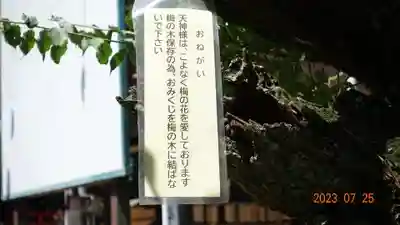 おねがい
天神様は、こよなく梅の花を愛しております
梅の木保存の為、おみくじを梅の木に結ばな
いで下さい
2023 07 25